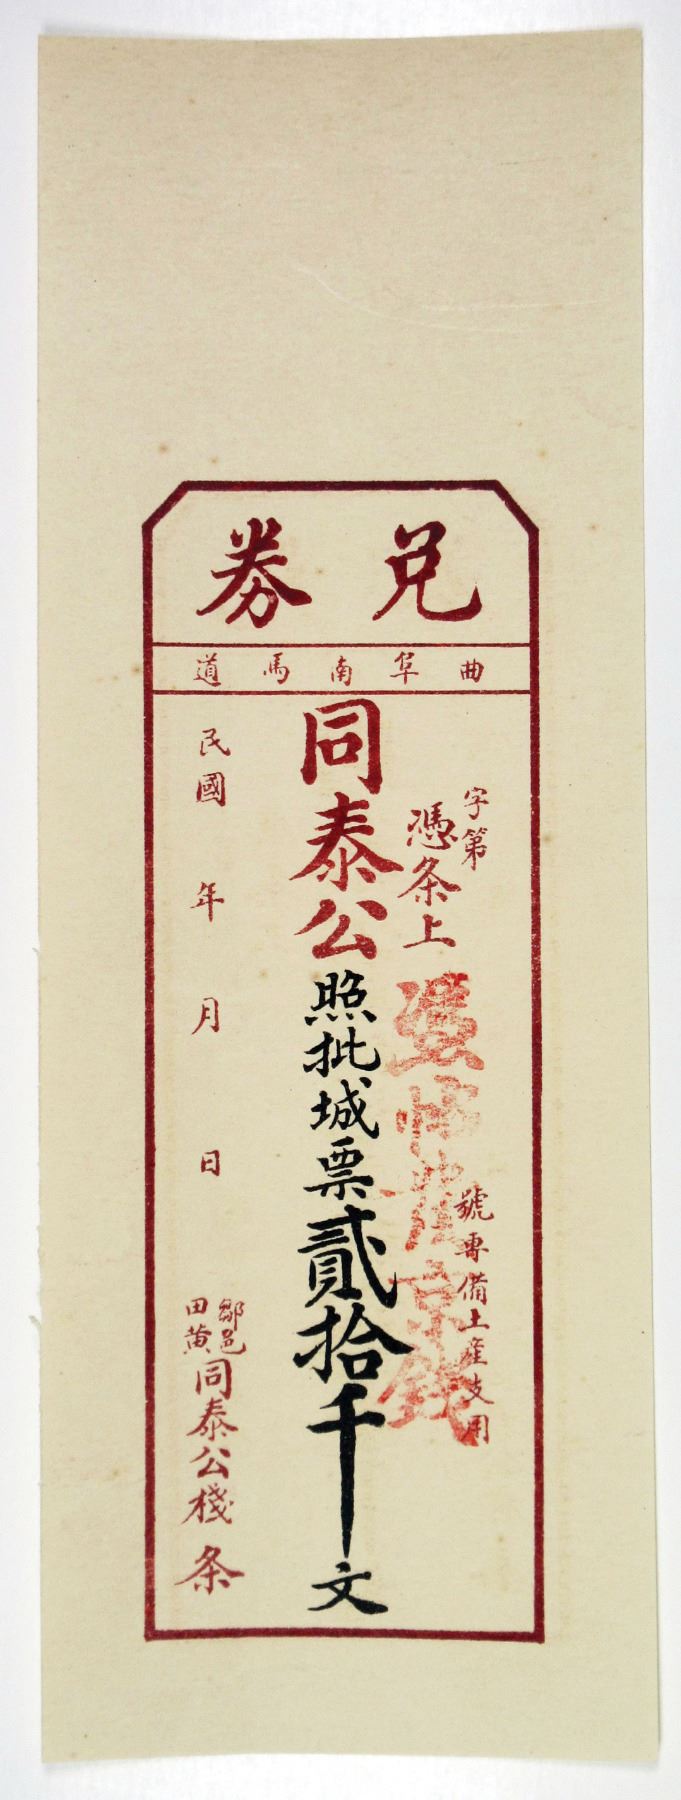 兑券
曲阜南馬道
字第 號專備土產支用
憑条上
憑帖發京錢
同泰公照批城票貳拾千文
民國 年 月 日
鄒邑
田黄
同泰公棧条